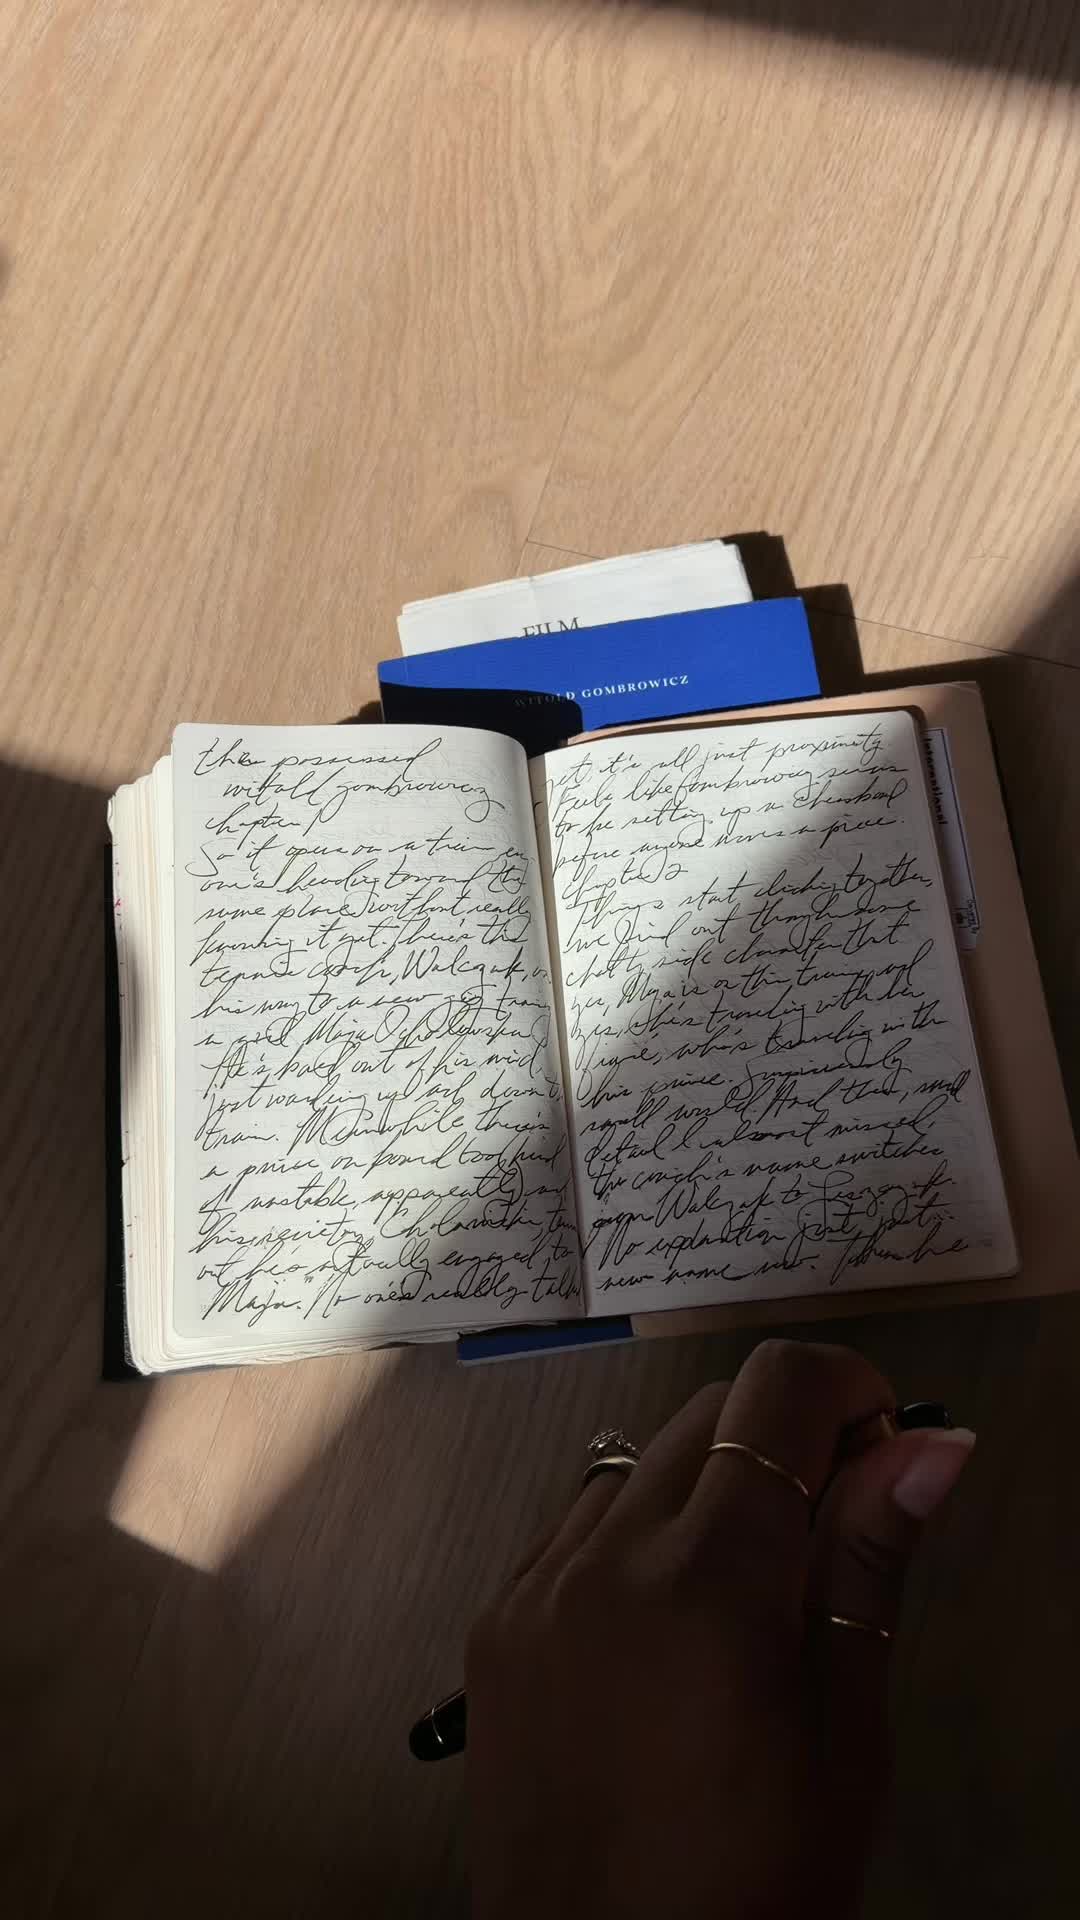 FILM
WITOLD GOMBROWICZ
International
the possessed
witold gombrowicz
chapter 1
So it opens on a train
one's heading toward the
same place without really
knowing it yet. There's this
tennis coach, Walczak, on
his way to a new gig train
a girl Maja Ocholowska
He's bored out of his mind,
just wandering up and down t
train. Meanwhile there's
a prince on board too, kind
of unstable, apparently, and
his secretary Cholawicki, turns
out he's actually engaged to
Maja. No one's really talk
yet, it's all just proximity.
Feels like Gombrowicz seems
to be setting up a chessboard
before anyone moves a piece.
Chapter 2
Things start clicking together,
we find out though some
chatty side character that
yes, Maja is on this train and
yes, she's traveling with her
fiancé, who's traveling with
his prince. Suspiciously
small world. And then, small
detail I almost missed,
the coach's name switches
from Walczak to Leszczuk.
No explanation just, just
new name now. Then he